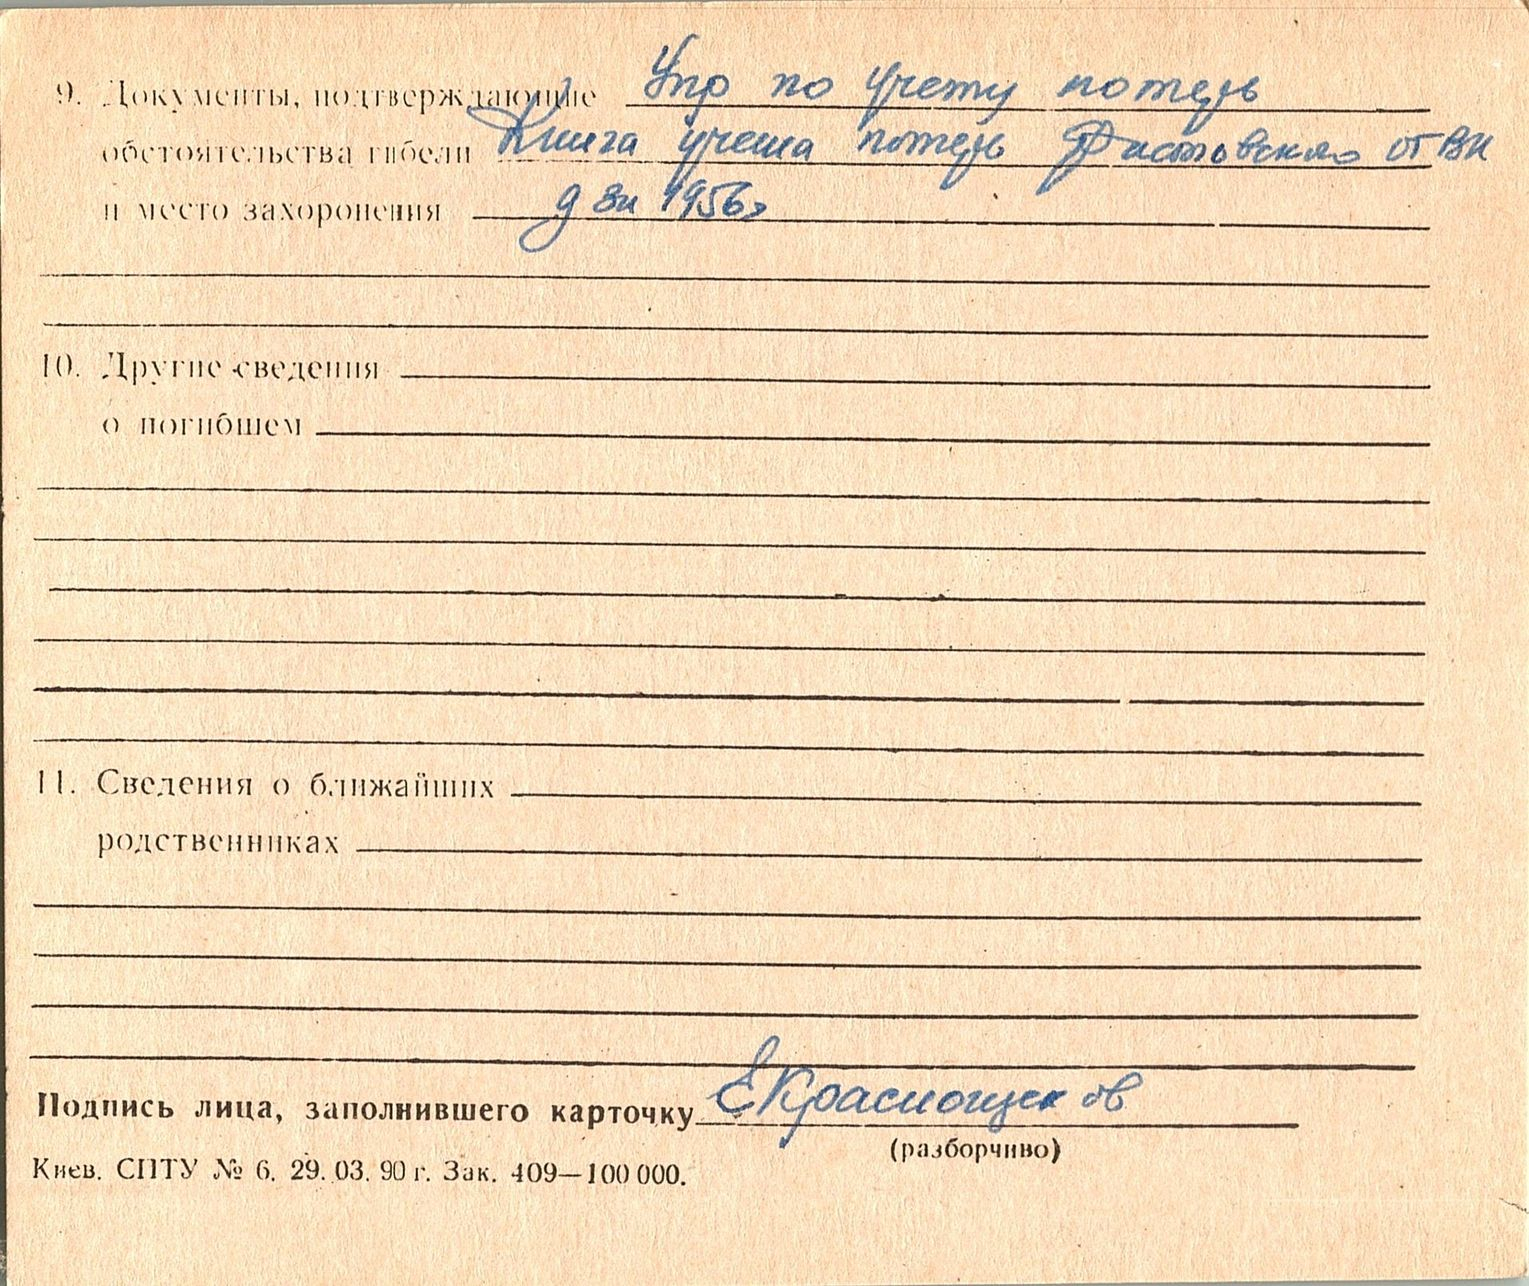 9. Документы, подтверждающие Упр по учету потерь
обстоятельства гибели Книга учета потерь Фастовского ОГВК
и место захоронения 1956г
10. Другие сведения
о погибшем
11. Сведения о ближайших
родственниках
Подпись лица, заполнившего карточку ЕКраснощеков
(разборчиво)
Киев. СПТУ № 6. 29. 03. 90 г. Зак. 409—100 000.